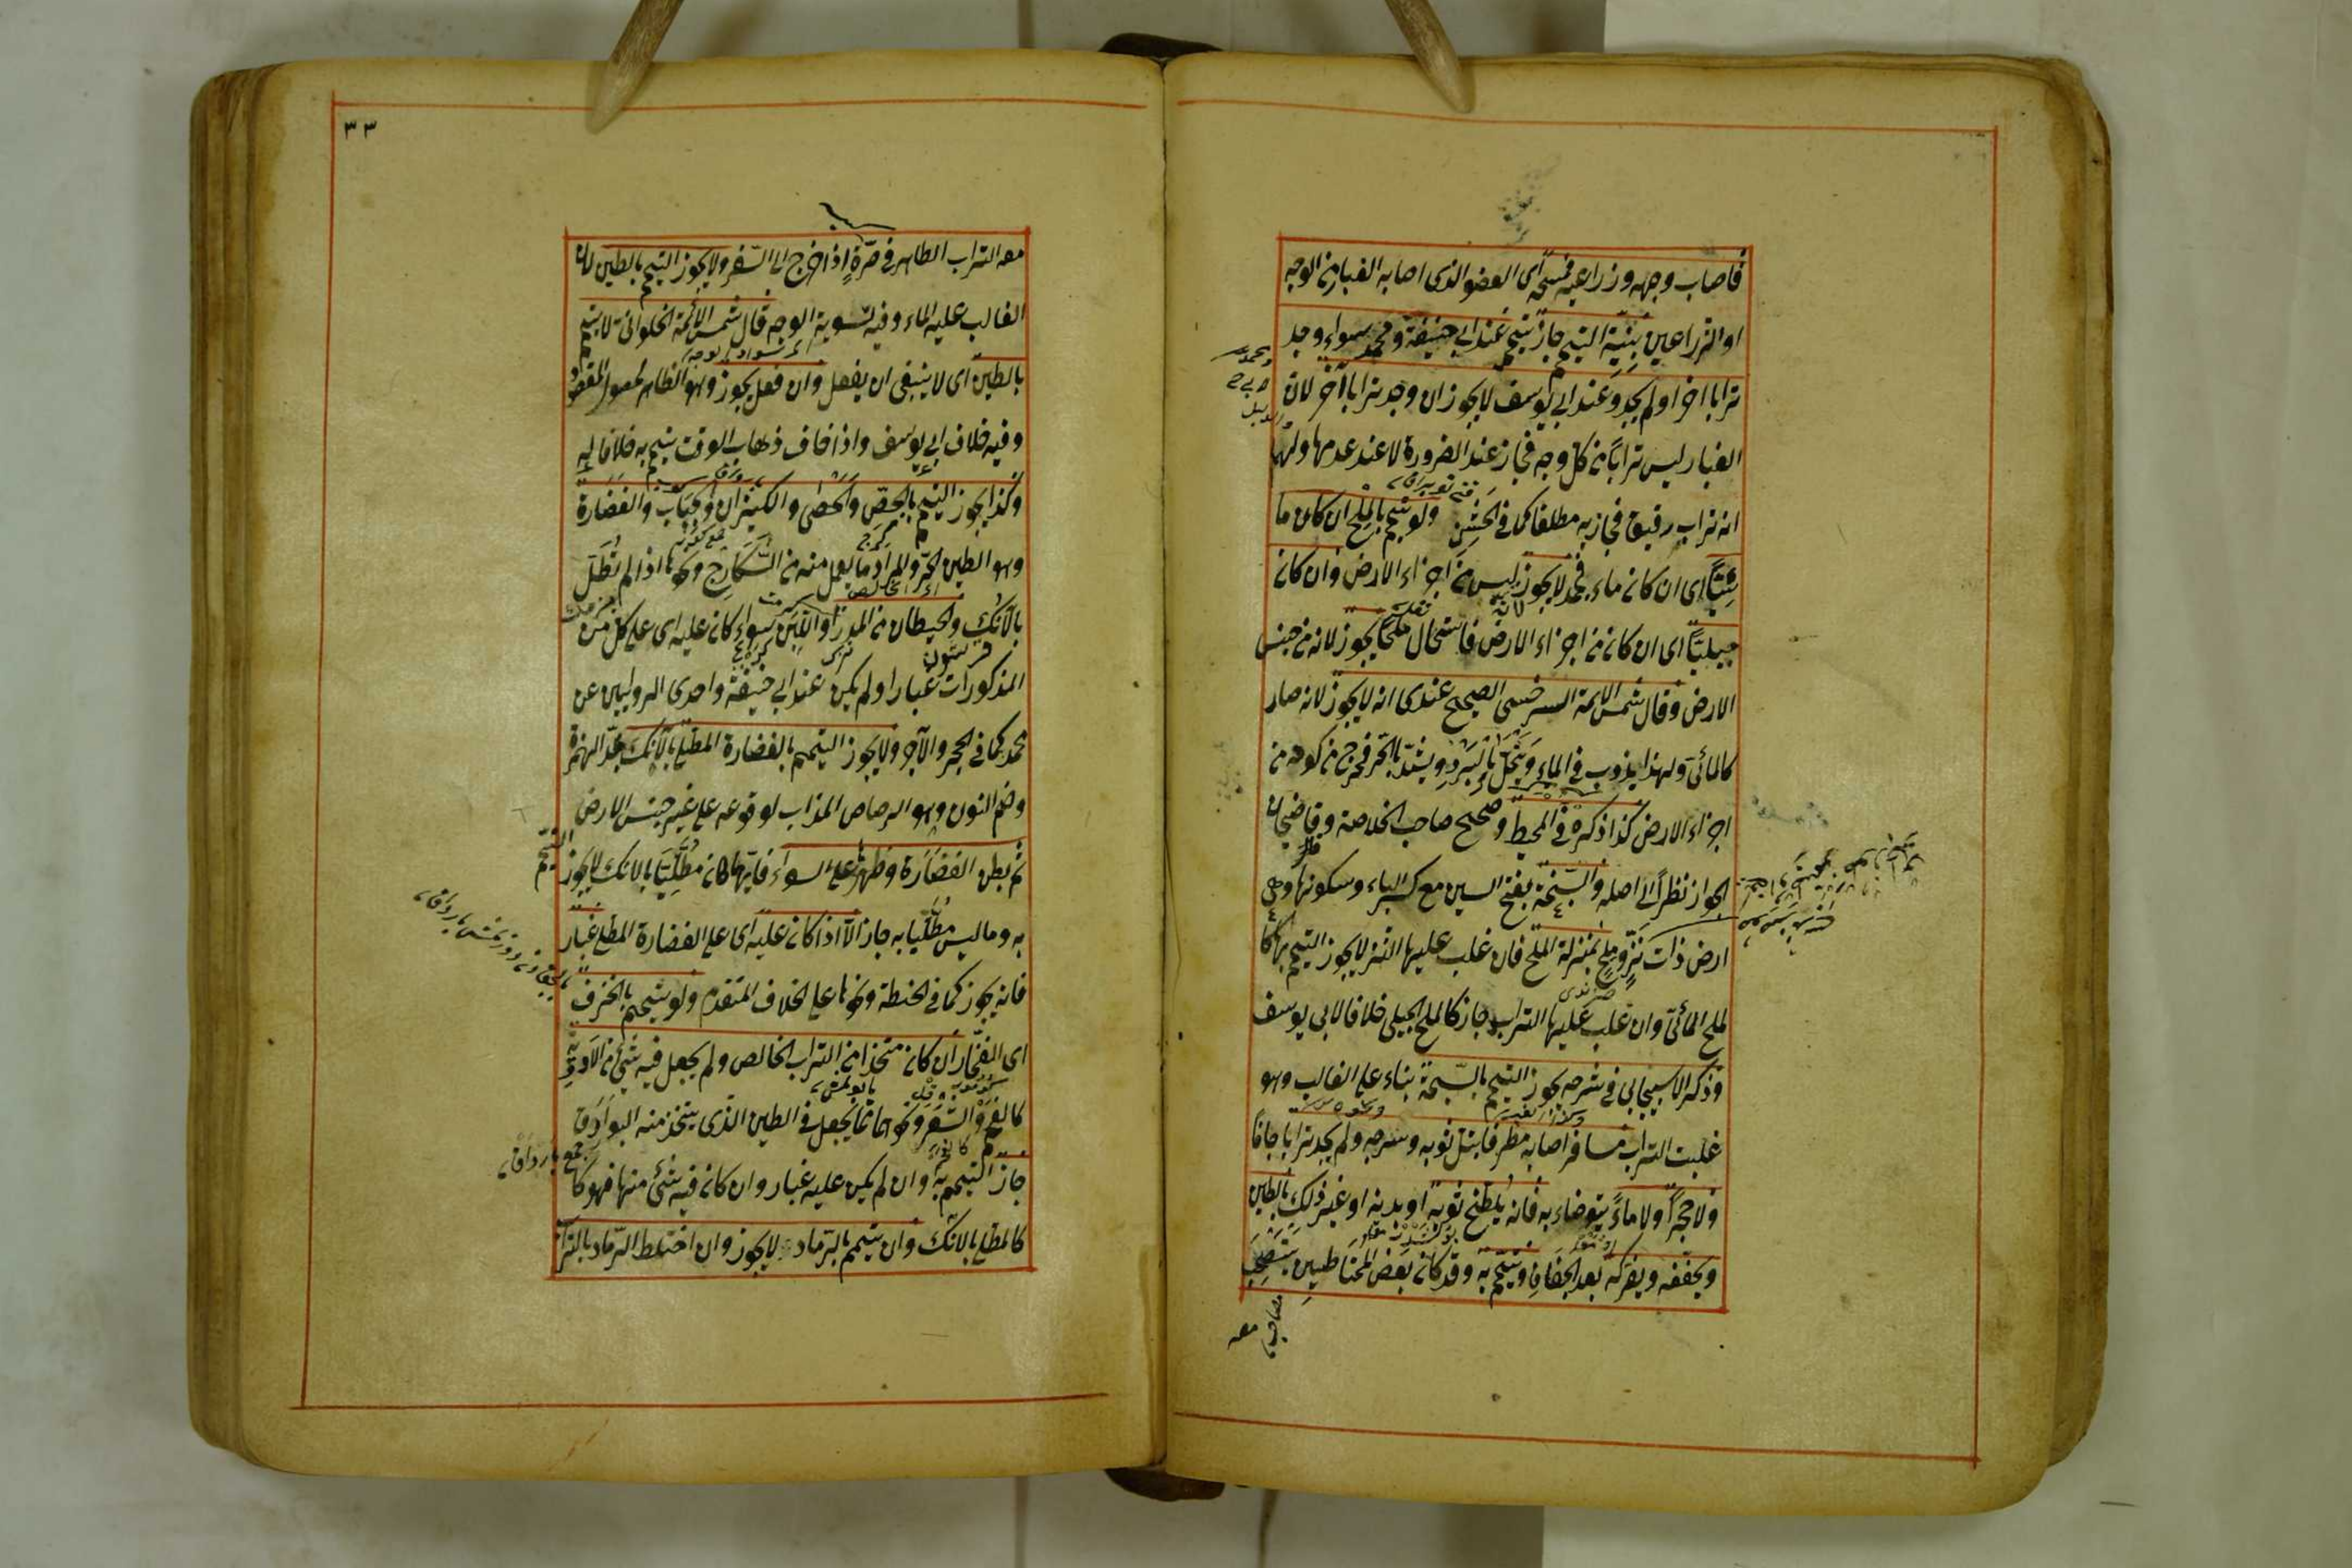 فاصاب وجهه وزراعيه فمسحه اى العضو الذى اصابه الغبار من الوجه
او الذراعين بنيّة التيمم جاز تيممه عند ابى حنيفة ومحمد سواء وجد
ترابا اخر او لم يجد وعند ابى يوسف لا يجوز ان وجد ترابا آخر لان
الغبار ليس ترابًا من كل وجه فجاز عند الضرورة لا عند عدمها ولهما
انه تراب رقيق فجاز به مطلقا كما فى الخشن ولو تيمم بالملح ان كان ما
ئيّا اى ان كان ماء فجمد لا يجوز ليس من اجزاء الارض وان كان
جبليّا اى ان كان من اجزاء الارض فاستحال ملحًا يجوز لانه من جنس
الارض وقال شمس الائمة السرخسى الصحيح عندى انه لا يجوز لانه صار
كالمائىّ ولهذا يذوب فى الماء وينحلّ بالبرد ويشتدّ بالحرّ فخرج من كونه من
اجزاء الارض كذا ذكره فى المحيط وصحح صاحب الخلاصة وقاضيخان
الجواز نظرًا الى اصله والسّبخة بفتح السين مع كسر الباء وسكونها وهى
ارض ذات نزّ وملح بمنزلة الملح فان غلب عليها النز لا يجوز التيمم بها كا
لملح المائىّ وان غلب عليها التراب جاز كالملح الجبلى خلافا لابى يوسف
وذكر الاسبيجابى فى شرحه يجوز التيمم بالسّبخة بناء على الغالب وهو
غلبت التراب مسافر اصابه مطر فابتلّ ثوبه وسرجه ولم يجد ترابا جافا
ولا حجرًا ولا ماءً يتوضاء به فانه يلطخ ثوبه او بدنه او غير ذلك بالطين
ويجففه ويفركه بعد الجفاف ويتيمم به وقد كان بعض المحتاطين يستصحب
معه
٣٣
معه التراب الطاهر فى صرّة اذا خرج الى السّفر ولا يجوز التيمم بالطين لان
الغالب عليه الماء وفيه تسوية الوجه قال شمس الأئمة الحلوانى لا يتيمم
بالطين اى لا ينبغى ان يفعل وان فعل يجوز وهو الظاهر لحصول المقصود
وفيه خلاف ابى يوسف واذا خاف ذهاب الوقت تيمم به خلافا له
وكذا يجوز التيمم بالجصّ والحصى والكيزان وحباب والغضارة
وهو الطين الحرّ والمراد ما يعمل منه من السّكارج ونحوها اذا لم تطل
بالآنك والحيطان من المدر او اللبن سواء كان عليه اى على كل من
المذكورات غبار او لم يكن عند ابى حنيفة واحدى الروايتين عن
محمد كما فى الحجر والآجر ولا يجوز التيمم بالغضارة المطلى بالآنك بمدّ الهمزة
وضم النون وهو الرصاص المذاب لوقوعه على غير جنس الارض
ثم بطن الغضارة وظهرها على السواء فايّهما كان مطليّا بالانك لا يجوز التيمم
به وما ليس مطليّا به جاز الّا اذا كان عليه اى على الغضارة المطلى غبار
فانه يجوز كما فى الحنطة ونحوها على الخلاف المتقدم ولو تيمم بالخزف
اى الفخّار ان كان متخذا من التراب الخالص ولم يجعل فيه شئ من الادوية
كالغرو والشعر ونحوهما مما يجعل فى الطين الذى يتخذ منه البوادق
جاز التيمم به وان لم يكن عليه غبار وان كان فيه شئ منها فهو كا
كالمطلى بالآنك وان تيمم بالرّماد لا يجوز وان اختلط الرّماد بالتراب